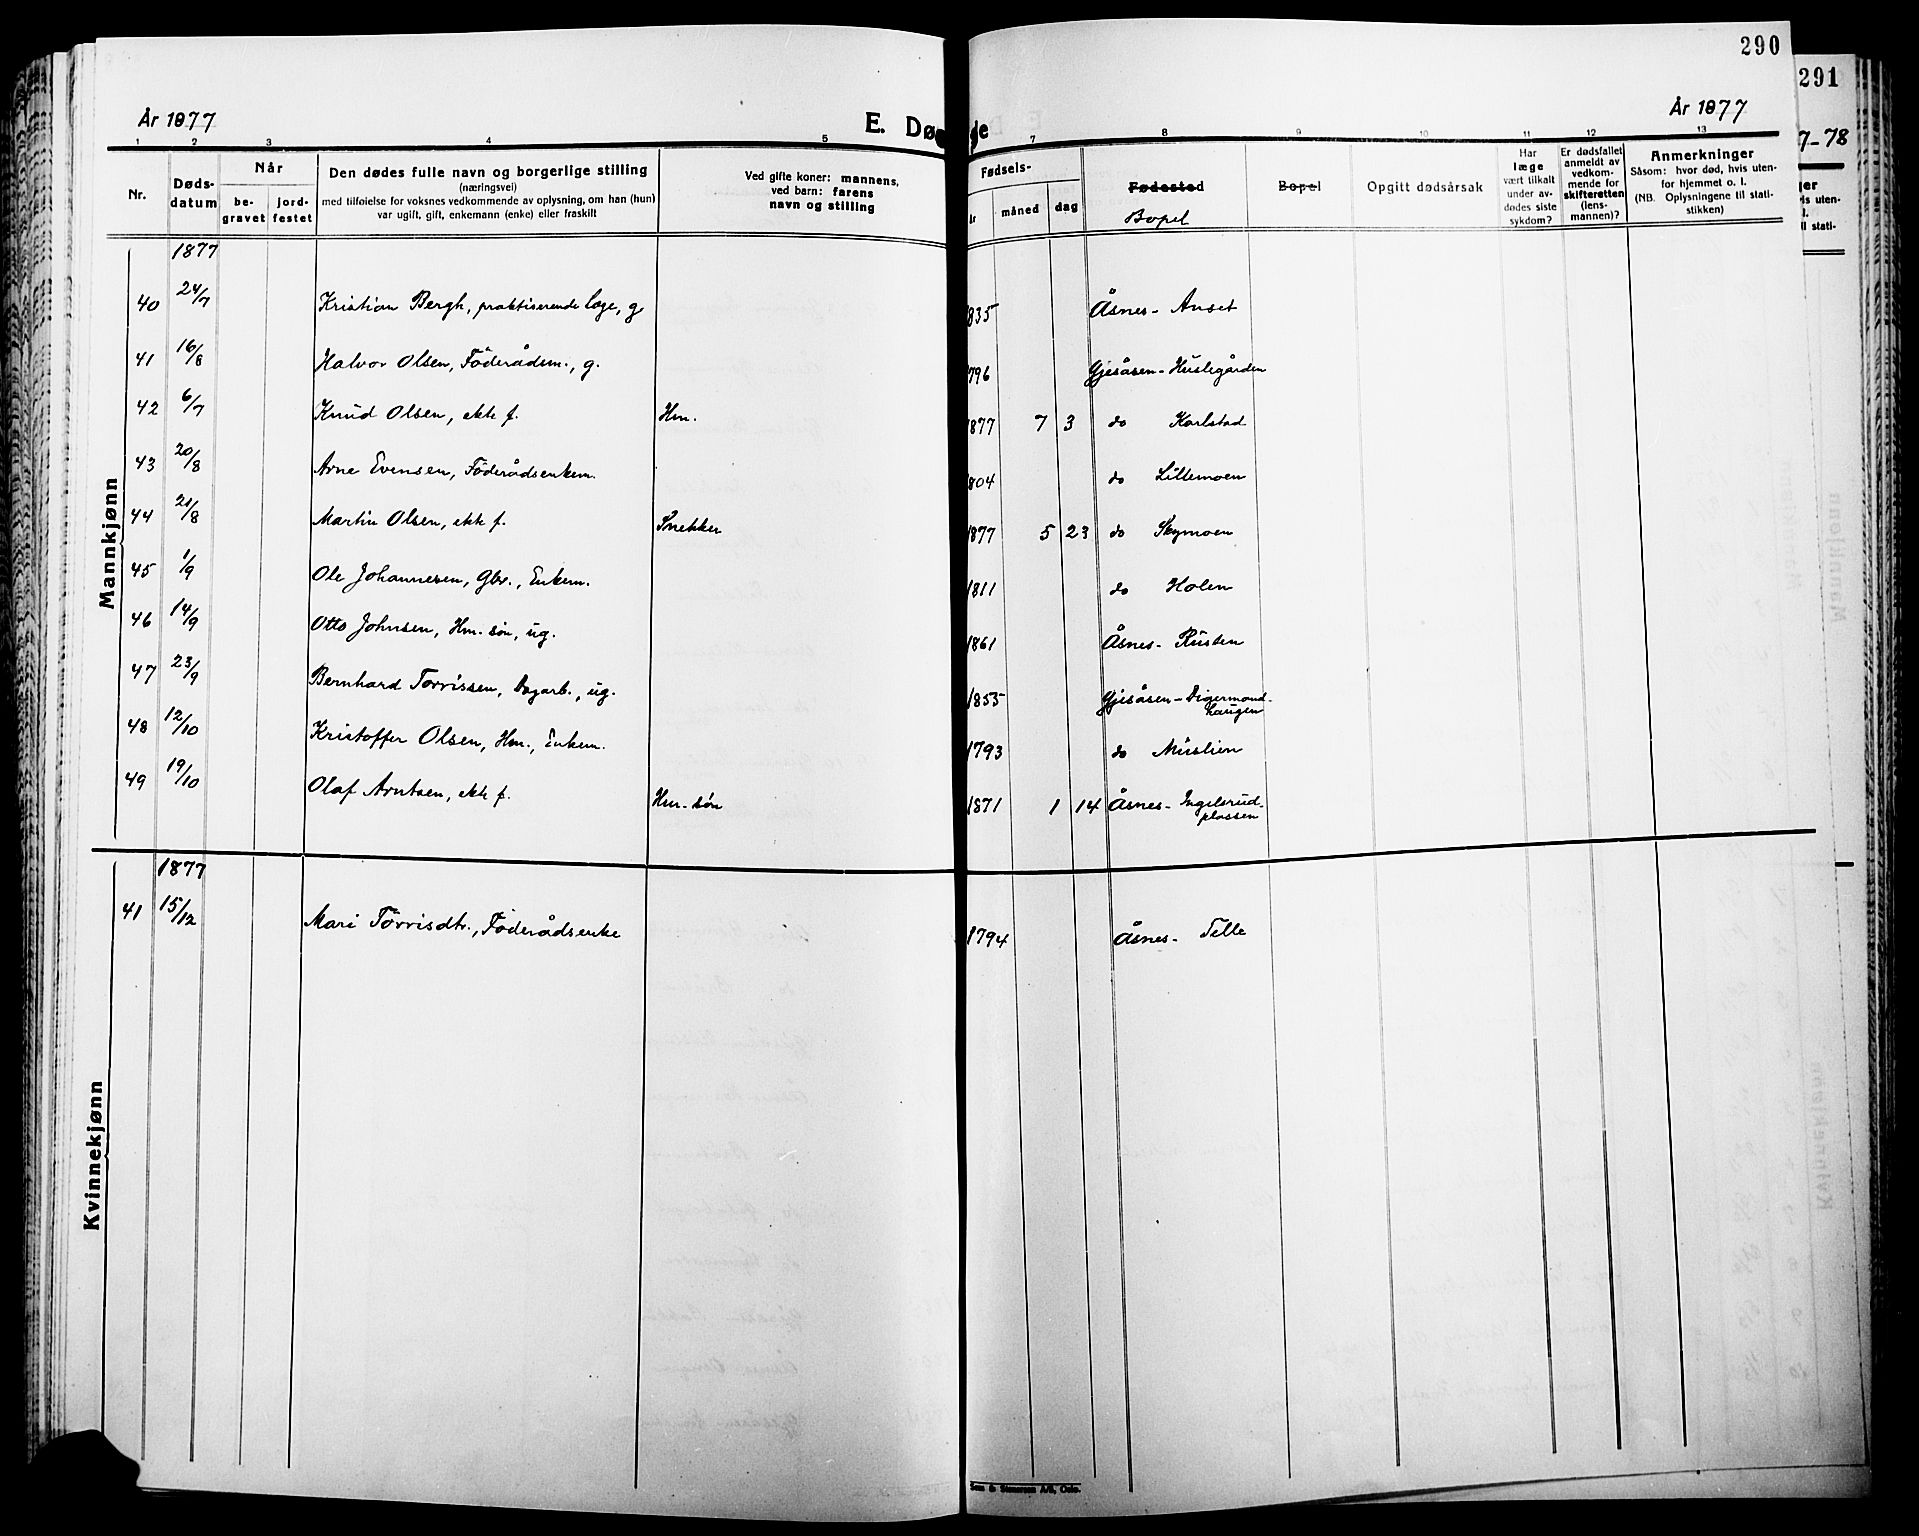 290
291
År 1877
E. Dø
de
År 1877
7-78
1 2 3 4 5 7 8 9 10 11 12 13
Nr.
Døds-
datum
Når
be-
gravet
jord-
festet
Den dødes fulle navn og borgerlige stilling
(næringsvei)
med tilføielse for voksnes vedkommende av oplysning, om han (hun)
var ugift, gift, enkemann (enke) eller fraskilt
Ved gifte koner: mannens,
ved barn: farens
navn og stilling
Fødsels-
år måned dag
Fødested
Bopel
Bopel
Opgitt dødsårsak
Har
læge
vært tilkalt
under av-
dødes siste
sykdom?
Er dødsfallet
anmeldt av
vedkom-
mende for
skifteretten
(lens-
mannen)?
Anmerkninger
Såsom: hvor død, hvis uten-
for hjemmet o. l.
(NB. Oplysningene til stati-
stikken)
ger
vis uten-
l.
il stati-
Mannkjønn
1877
40 24/7 Kristian Bergh, praktiserende læge, g 1835 Åsnes - Anset
41 16/8 Halvor Olsen, Föderådsm., g. 1796 Gjesåsen - Huslegården
42 6/7 Knud Olsen, ekte f. Hm. 1877 7 3 do Karlstad
43 20/8 Arne Evensen, Föderådsenkem. 1804 do Lillemoen
44 21/8 Martin Olsen, ekte f. Snekker 1877 5 23 do Skymoen
45 1/9 Ole Johannesen, Gbr., Enkem. 1811 do Holen
46 14/9 Otto Johnsen, Hm. søn, ug. 1861 Åsnes - Rusten
47 23/9 Bernhard Torrissen, Dagarb., ug. 1855 Gjesåsen - Digermond-
haugen
48 12/10 Kristoffer Olsen, Hm., Enkem. 1793 do Muslien
49 19/10 Olaf Arntsen, ekte f. Hm-søn 1871 1 14 Åsnes - Ingelsrud-
plassen
Kvinnekjønn
1877
41 15/12 Mari Torrisdtr., Föderådsenke 1794 Åsnes - Telle
Sem & Stenersen A/S, Oslo.